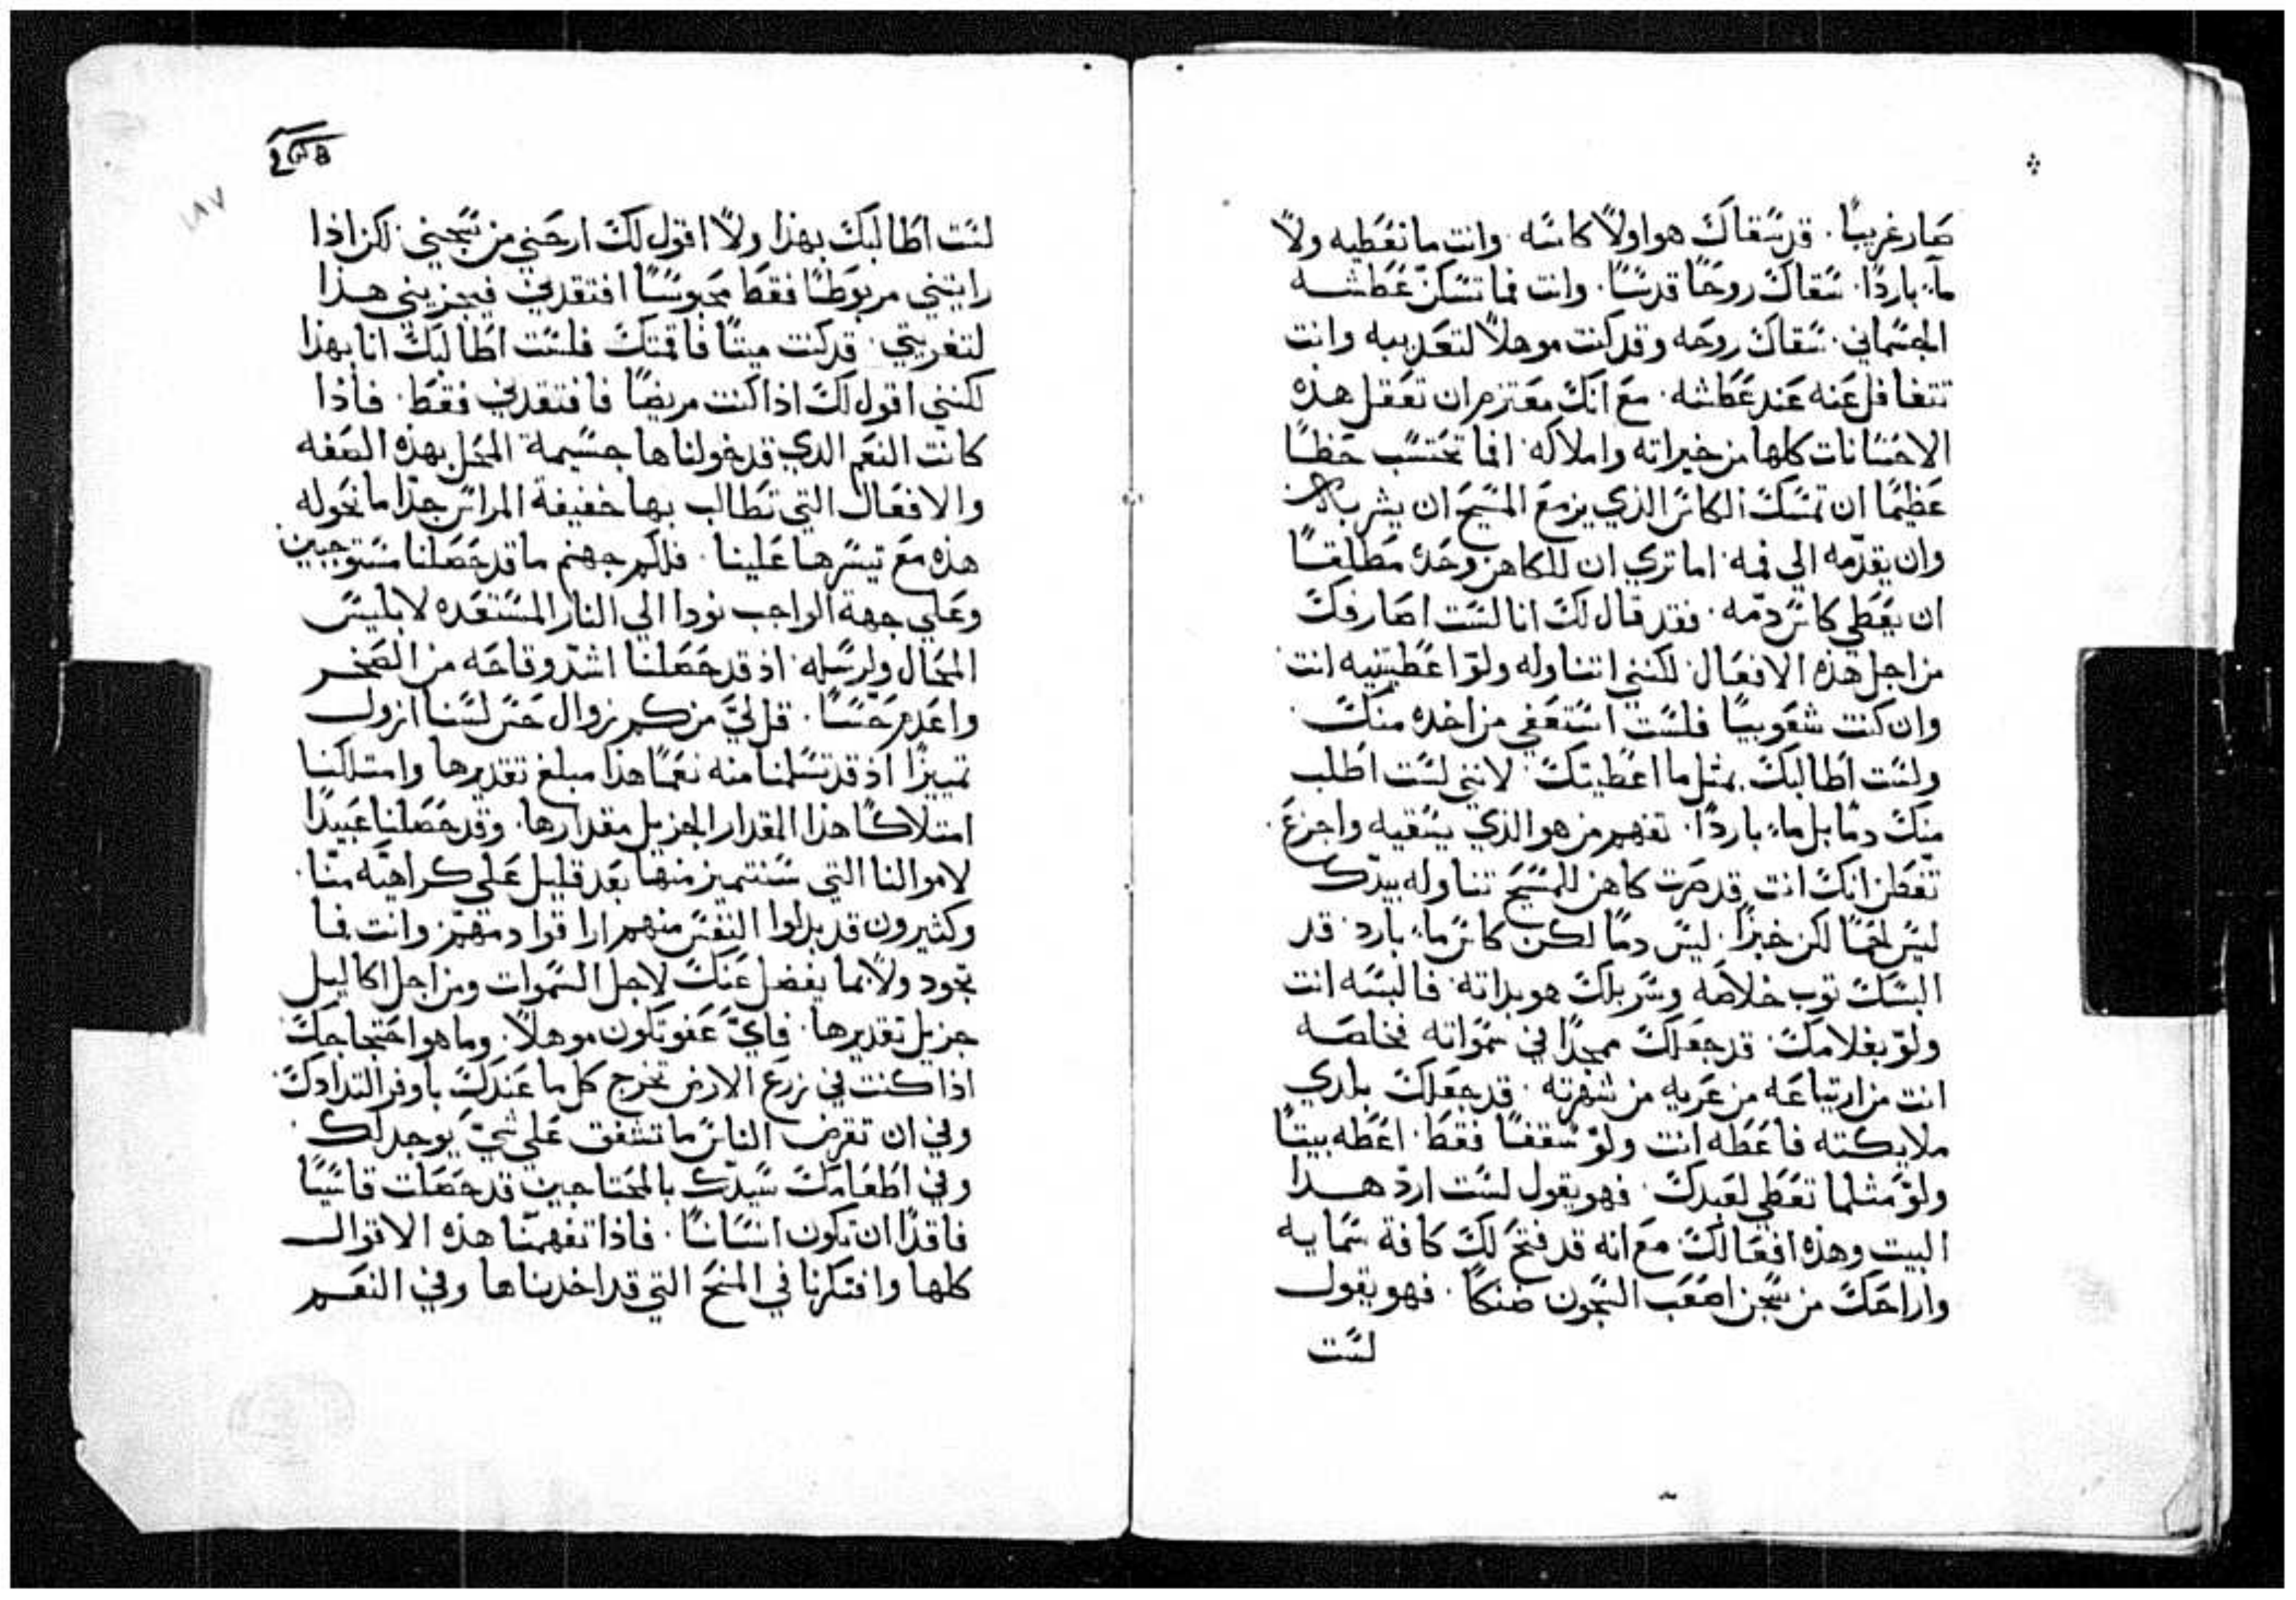 صار غريبًا. قد سقاك هو اولًا كاسه. وانت ما تعطيه ولا
ماءً باردًا. سقاك روحًا قدسًا. وانت فما تسكن عطشه
الجسماني. سقاك روحه وقد كنت موهلًا لتعذيبه وانت
تتغافل عنه عند عطاشه. مع انك معتزم ان تعقل هذه
الاحسانات كلها من خيراته واملاكه. افما تحتسب حظًا
عظيمًا ان تمسك الكاس الذي يزمع المسيح ان يشرب
وان يقدمه الي فمه. اما تري ان للكاهن وحده مطلقًا
ان يعطي كاس دمه. فقد قال لك انا لست اصارفك
من اجل هذه الافعال. لكنني اتناوله ولو اعطيتنيه انت
وان كنت شعوبيًا فلست استعفي من اخده منك.
ولست اطالبك بمثل ما اعطيتك. لانني لست اطلب
منك دمًا بل ماءً باردًا. تفهم من هو الذي يسقيه واجزع.
تفطن انك انت قد صرت كاهن للمسيح تناوله بيدك
ليس لحمًا لكن خبزًا. ليس دمًا لكن كاس ماء بارد. قد
البسك توب خلاصه وسربلك هو بداته. فالبسه انت
ولو بغلامك. قد جعلك ممجدًا في سمواته فخلصه
انت من ارتياعه من عريه من شهرته. قد جعلك بلدي
ملايكته فاعطه انت ولو سقفًا فقط. اعطه بيتًا
ولو مثلما تعطي لعبدك. فهو يقول لست ارد هدا
البيت وهذه افعالك. مع انه قد فتح لك كافة سمايه
واراحك من سجن اصعب السجون ضنكًا. فهو يقول
لست
٢٥٥
١٨٧
لست اطالبك بهذا ولا اقول لك ارحني من سجني. لكن اذا
رايتني مربوطًا فقط محبوسًا افتقدني فيجزيني هذا
لتغربتي. قد كنت ميتًا فاقمتك فلست اطالبك انا بهذا
لكنني اقول لك اذا كنت مريضًا فافتقدني فقط. فاذا
كانت النعم الدي قد خولناها جسيمة المحل بهذه الصفه
والافعال التي تطالب بها خفيفة المراس جدًا ما نخوله
هذه مع تيسرها علينا. فلكم جهنم ما قد حصلنا مستوجبين
وعلي جهة الواجب نودا الي النار المستعده لابليس
المحال ولرسله. اذ قد حصلنا اشد وقاحه من الصخر
واعدم حسًا. قل لي من كم زوال حس لسنا ازول
تمييزًا اذ قد تسلمنا منه نعمًا هذا مبلغ تقديرها وامتلكنا
امتلاكًا هذا المقدار الجزيل مقدارها. وقد حصلنا عبيدًا
لاموالنا التي سنتميز منها بعد قليل علي كراهية منا.
وكثيرون قد بدلوا النفس منهم وانت فما
تجود ولا بما يفضل عنك لاجل السموات ومن اجل اكاليل
جزيل تقديرها. فاي عفو تكون موهلًا. وما هو احتجاجك
اذا كنت في زرع الارض تخرج كل ما عندك باوفر التدادك.
وفي ان تقرض الناس ما تشفق علي شي يوجد لك.
وفي اطعامك سيدك بالمحتاجين قد حصلت قاسيًا
فاقدًا ان تكون انسانًا. فاذا تفهمنا هذه الاقوال
كلها وافتكرنا في المنح التي قد اخدناها وفي النعم